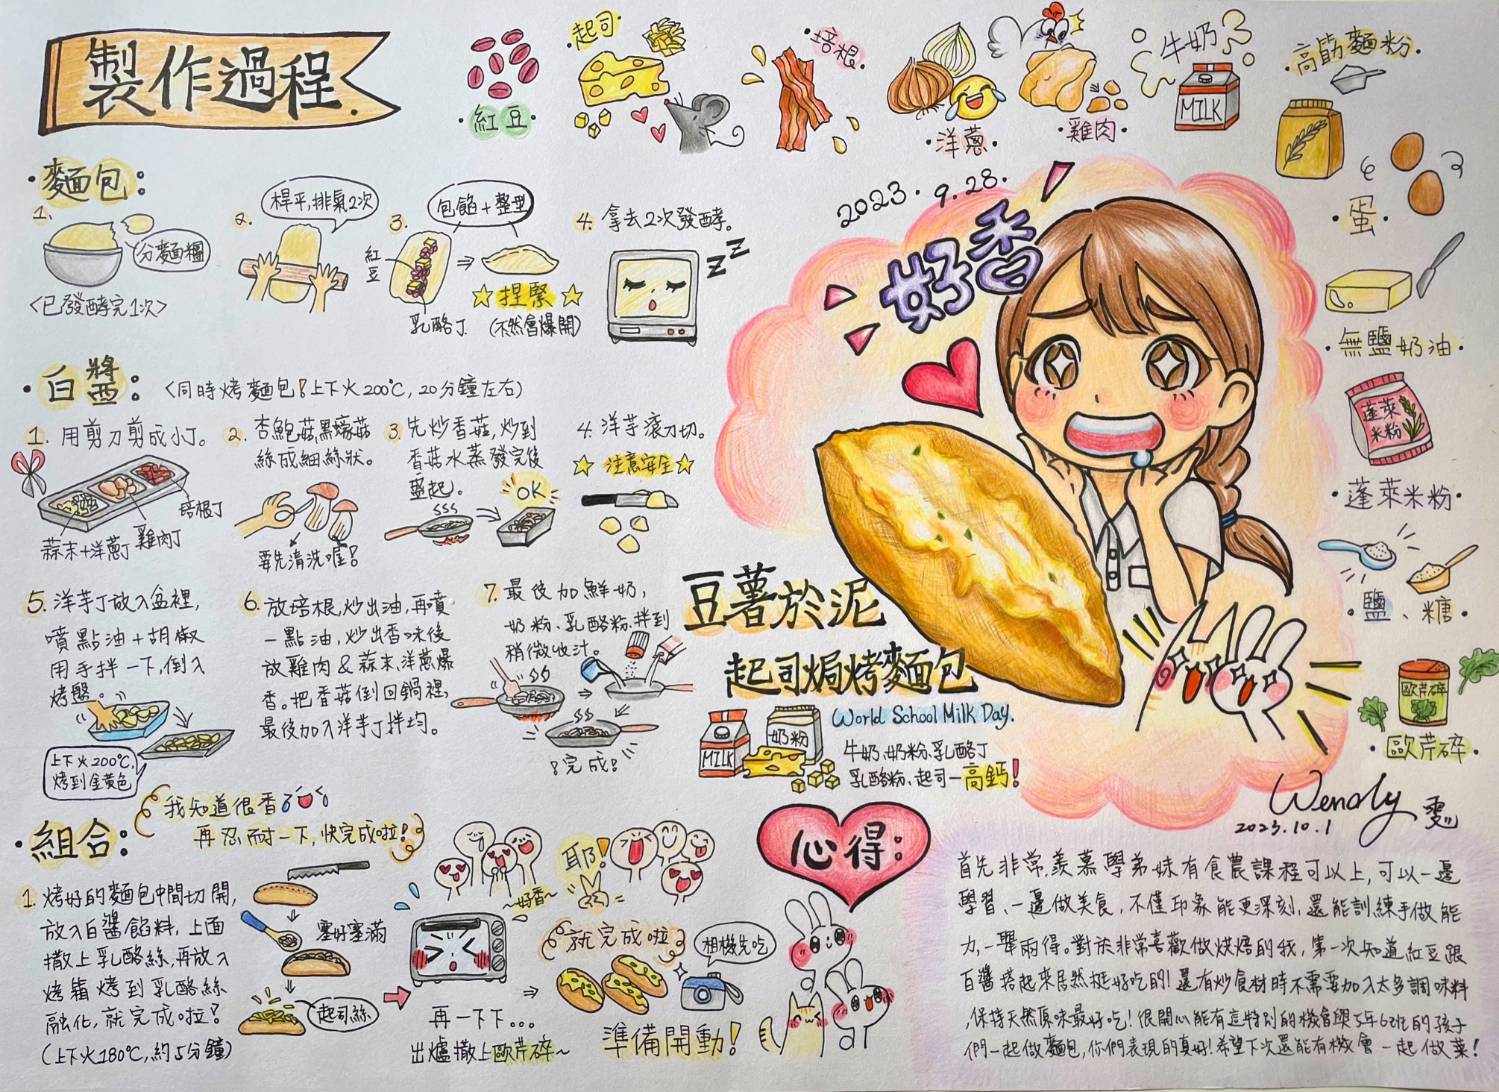 製作過程
紅豆
起司
培根
洋蔥
雞肉
牛奶
MILK
高筋麵粉
蛋
無鹽奶油
蓬萊
米粉
蓬萊米粉
鹽、糖
歐芹碎
歐芹碎
麵包:
1.
分麵糰
<已發酵完1次>
2.
桿平,排氣2次
3.
包餡+整型
紅豆
乳酪丁
捏緊
(不然會爆開)
4. 拿去2次發酵。
ZZZ
白醬:
<同時烤麵包!上下火200℃,20分鐘左右>
1. 用剪刀剪成小丁。
培根丁
雞肉丁
蒜末+洋蔥丁
2. 杏鮑菇,黑蠔菇
絲成細絲狀。
要先清洗喔!
3. 先炒香菇,炒到
香菇水蒸發完後
盛起。
OK
4. 洋芋滾刀切。
注意安全
5. 洋芋丁放入盆裡,
噴點油+胡椒
用手拌一下,倒入
烤盤。
上下火200℃,
烤到金黃色
6. 放培根,炒出油,再噴
一點油,炒出香味後
放雞肉&蒜末,洋蔥爆
香。把香菇倒回鍋裡,
最後加入洋芋丁拌均。
7. 最後加鮮奶,
奶粉、乳酪粉,拌到
稍微收汁。
!完成!
我知道很香
再忍耐一下,快完成啦!
組合:
1. 烤好的麵包中間切開,
放入白醬餡料,上面
撒上乳酪絲,再放入
烤箱烤到乳酪絲
融化,就完成啦!
(上下火180℃,約5分鐘)
塞好塞滿
起司絲
~好香~
再一下下...
出爐撒上歐芹碎~
耶!
就完成啦
相機先吃
準備開動!
2023.9.28.
好香
豆薯於泥
起司焗烤麵包
World School Milk Day.
MILK
奶粉
牛奶、奶粉、乳酪丁
乳酪粉、起司—高鈣!
Wendy 雯
2023.10.1
心得:
首先非常羨慕學弟妹有食農課程可以上,可以一邊
學習、一邊做美食,不僅印象能更深刻,還能訓練手做能
力,一舉兩得。對於非常喜歡做烘焙的我,第一次知道紅豆跟
白醬搭起來居然挺好吃的!還有炒食材時不需要加入太多調味料
,保持天然原味最好吃!很開心能有這特別的機會與5年6班的孩子
們一起做麵包,你們表現的真好!希望下次還能有機會一起做菜!